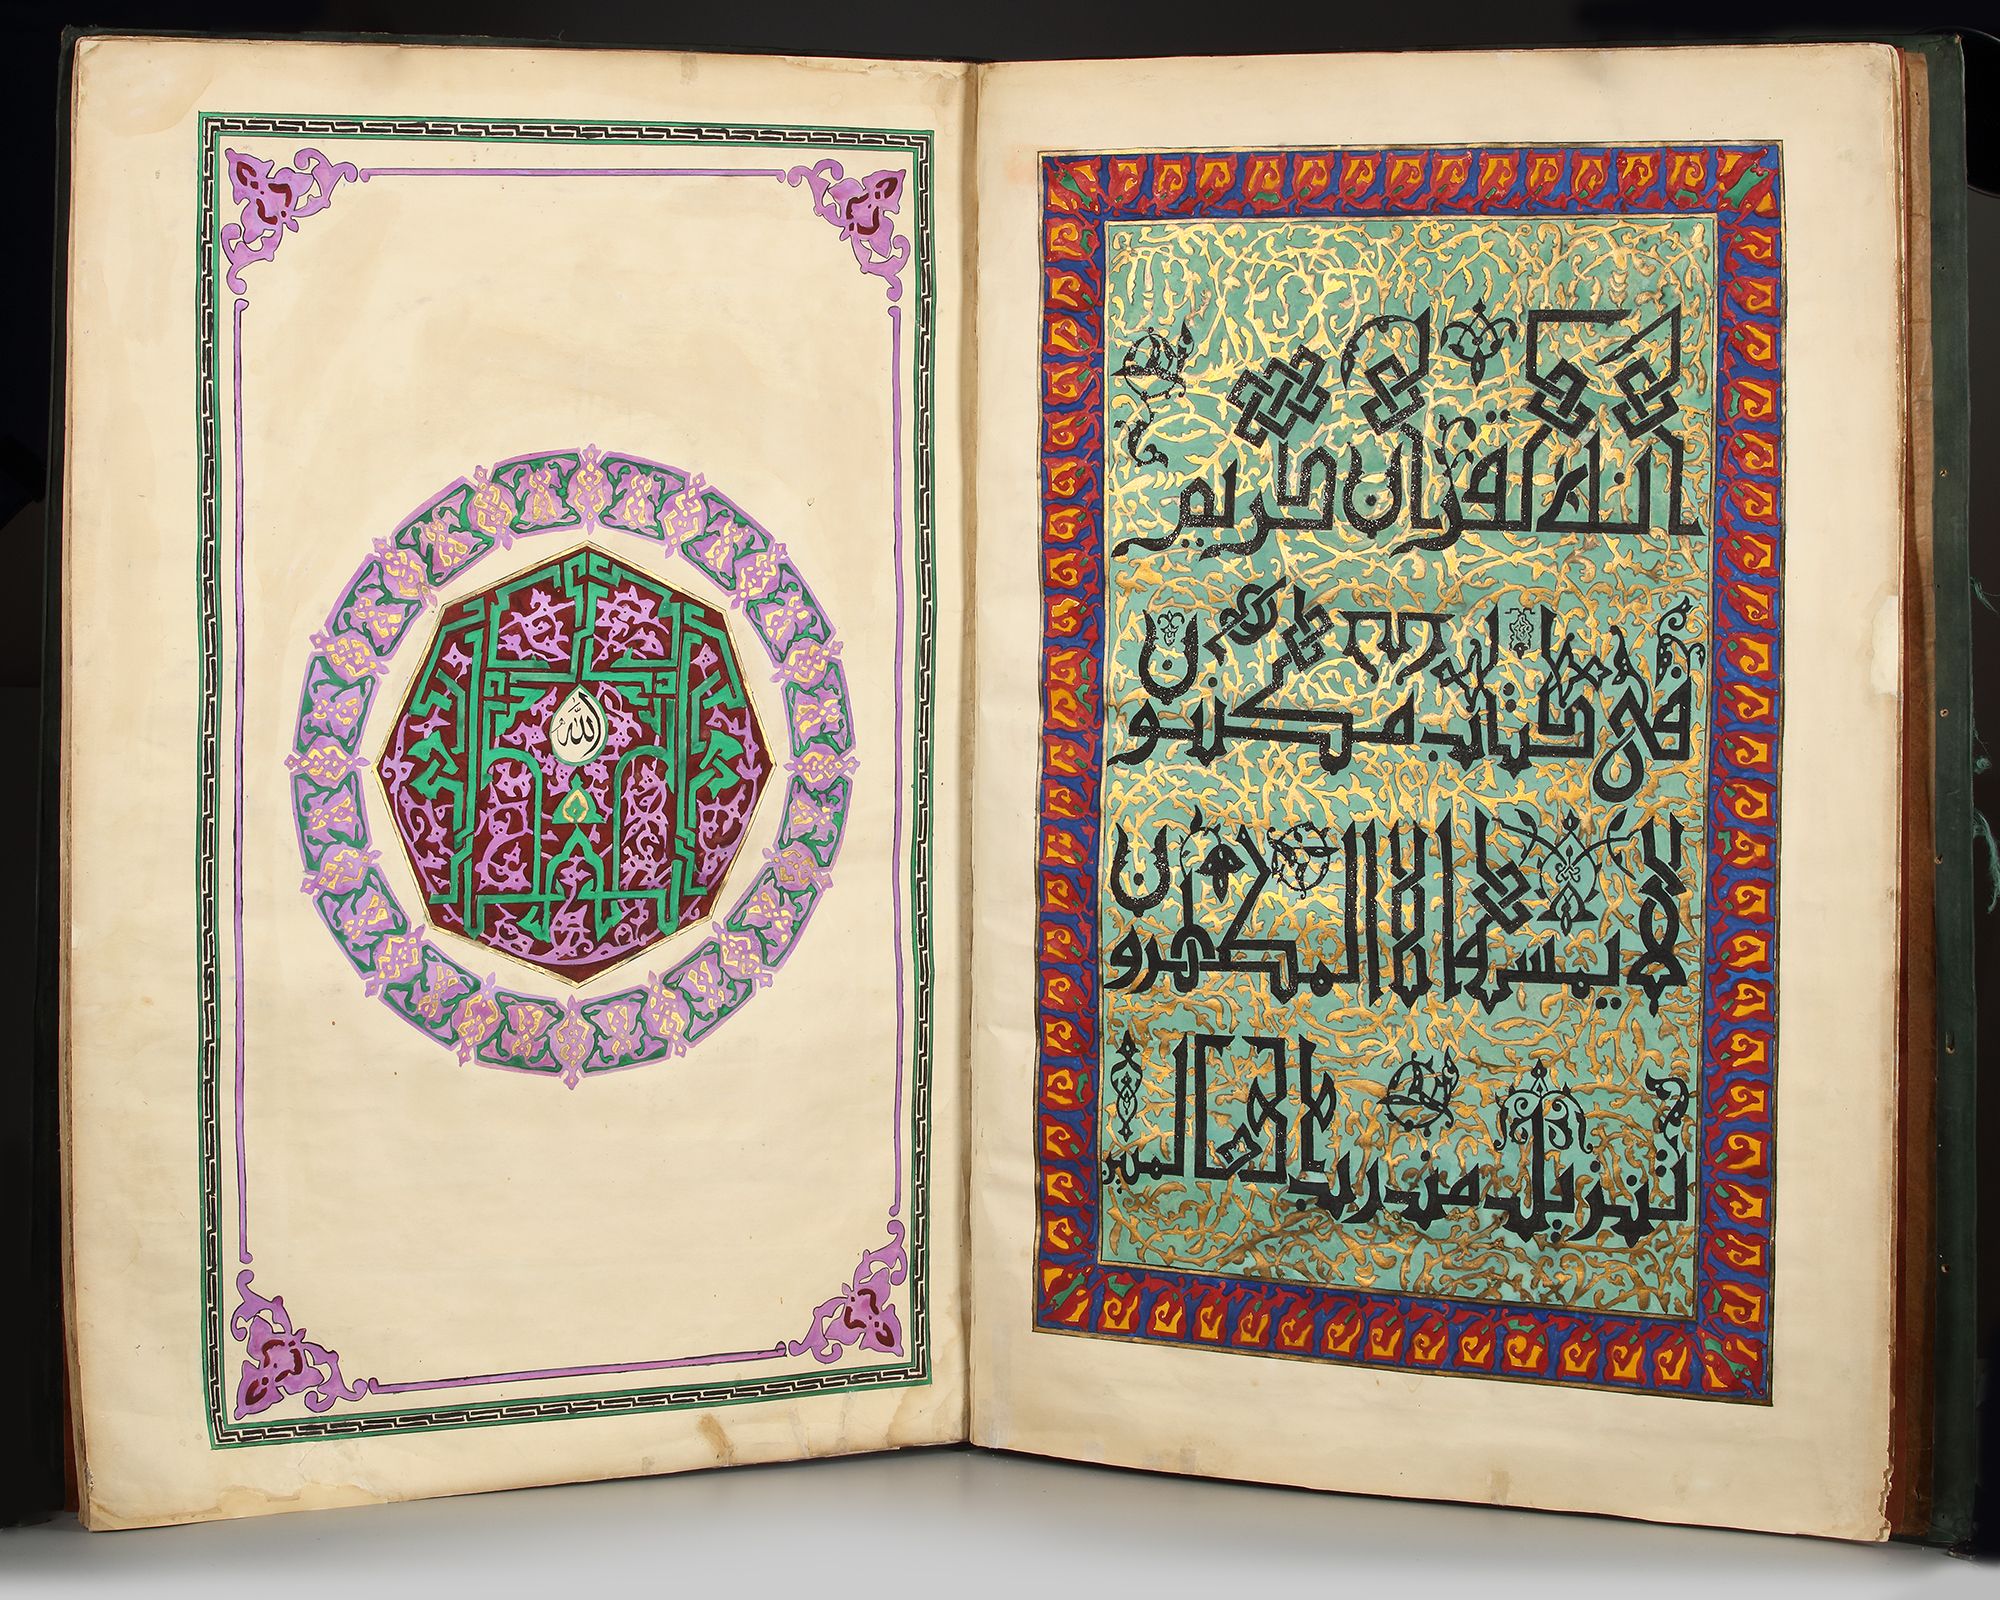 إنه لقرآن كريم
في كتاب مكنون
لا يمسه إلا المطهرون
تنزيل من رب العالمين
الله